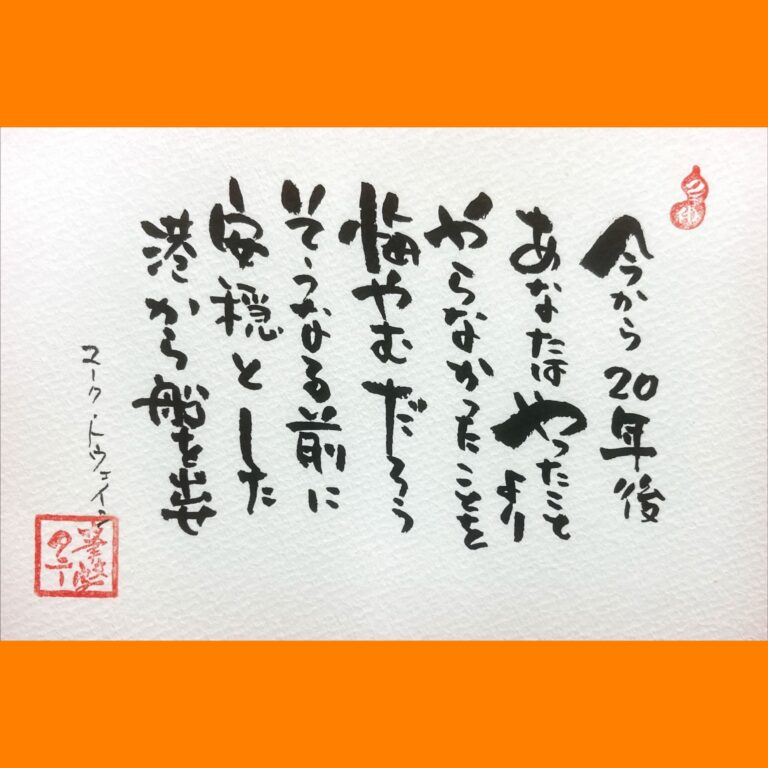 今から20年後
あなたはやったことより
やらなかったことを
悔やむだろう
そうなる前に
安穏とした
港から船を出せ
マーク・トウェイン